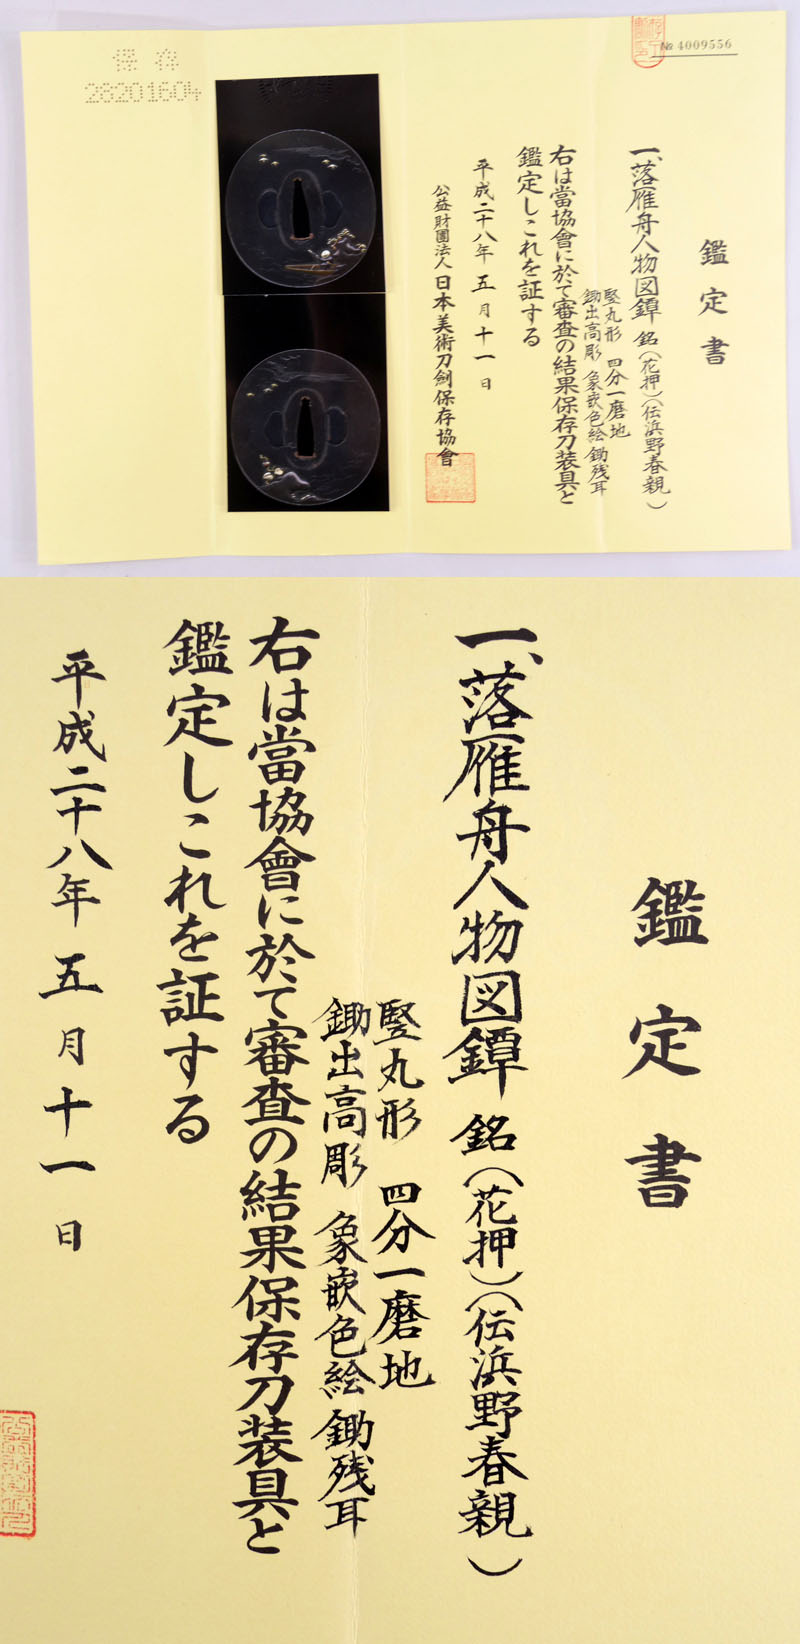 保存
28201604
№ 4009556
鑑定書
一、落雁舟人物図鐔 銘(花押)(伝浜野春親)
竪丸形 四分一磨地
鋤出高彫 象嵌色絵 鋤残耳
右は當協會に於て審査の結果保存刀装具と
鑑定しこれを証する
平成二十八年五月十一日
公益財團法人日本美術刀剣保存協會
鑑定書
一、落雁舟人物図鐔 銘(花押)(伝浜野春親)
竪丸形 四分一磨地
鋤出高彫 象嵌色絵 鋤残耳
右は當協會に於て審査の結果保存刀装具と
鑑定しこれを証する
平成二十八年五月十一日